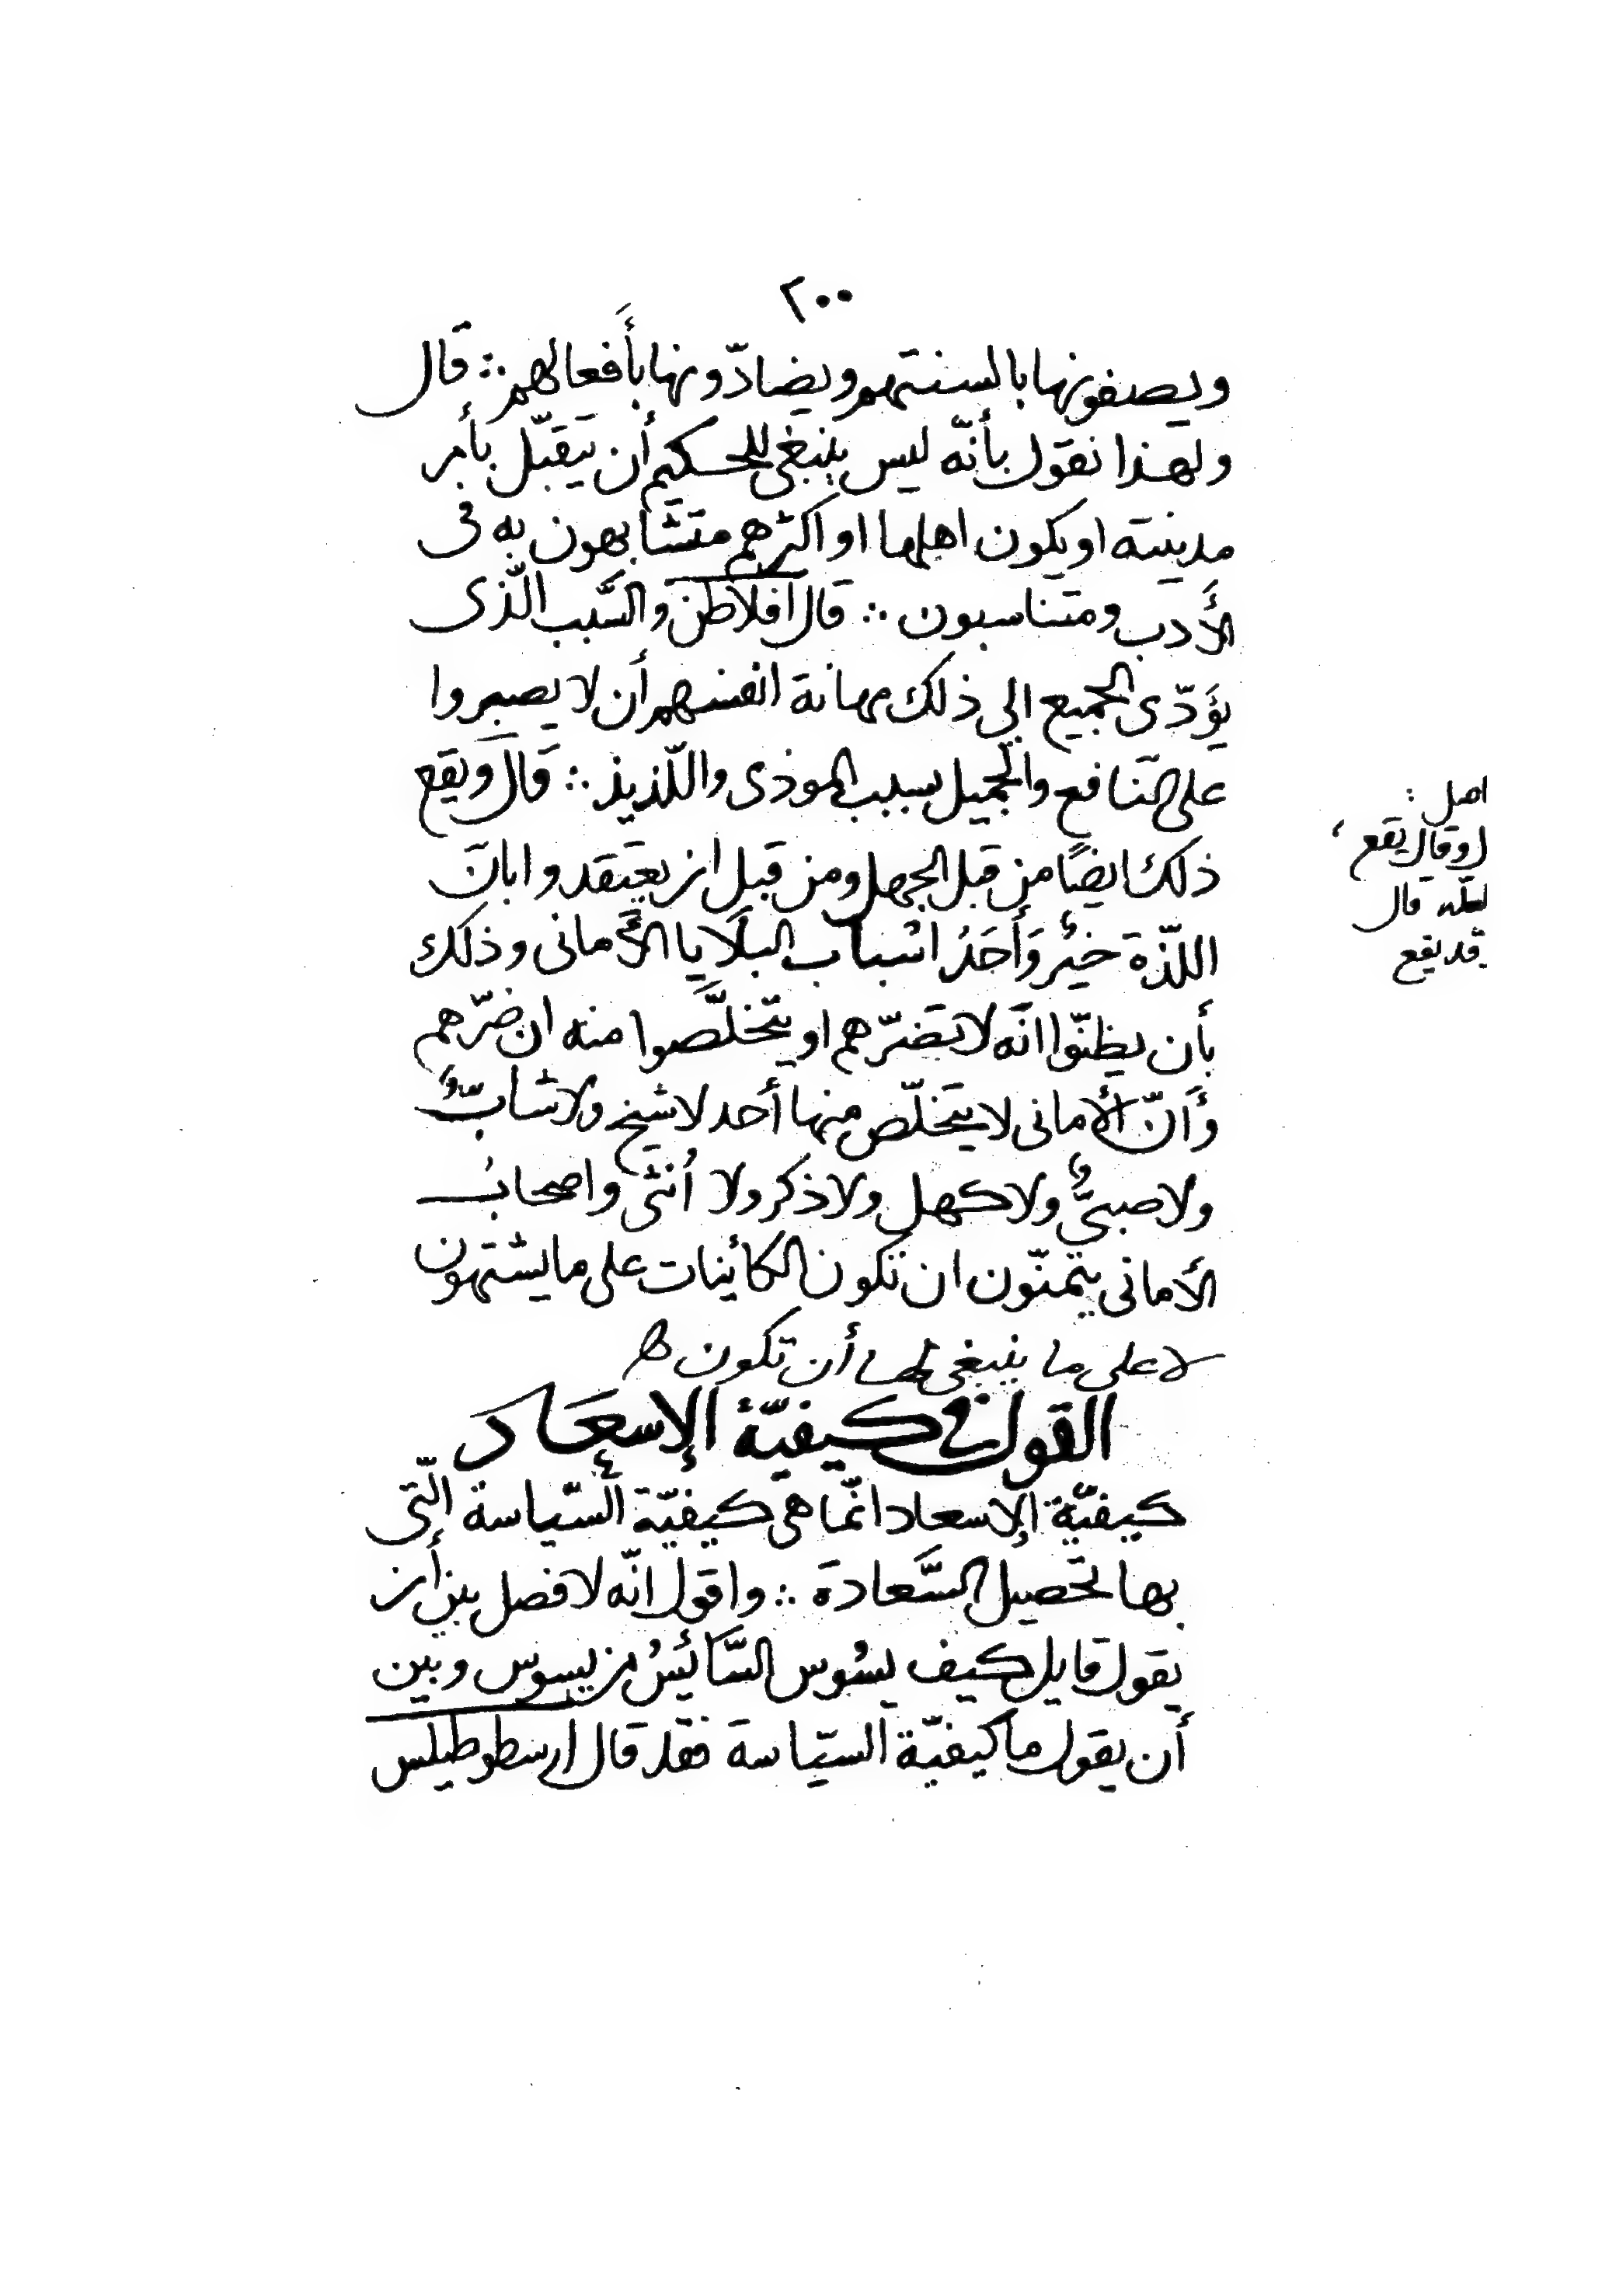 ٢٠٠
ويصفونها بالسنتهم ويضادّونها بأَفعالهم ∴ قال
ولهذا نقول بأنّه ليس ينبغى للحكيم أن يتقبّل بأمر
مدينة او يكون اهلها او اكثرهم متشابهون به فى
الأَدب ومتناسبون ∴ قال افلاطن والسَّبب الّذى
يؤَدّى الجميع الى ذلك مهانة انفسهم أن لا يصبروا
على النّافع والجميل بسبب الموذى واللّذيذ ∴ قال ويقع
ذلك ايضًا من قبل الجهل ومن قبل ان يعتقدوا بانّ
اللّذّة خيْر وَأَحَدُ اسْباب البلَايا الأَمانى وذلك
بأن يظنّوا انّه لا تضرّهم او يتخلَّصوا منه ان ضرّهم
وأَنّ الأمانى لا يتخلّص منها أحد لا شيخ ولا شابٌّ
ولا صبىٌّ ولا كهل ولا ذكر ولا أُنثى واصحابُ
الأمانى يتمنّون ان تكون الكائنات على ما يشتهون
لا على ما ينبغى لها أن تكون
القول فى كيفيّة الإسعَاد
كيفيّة الإسعاد انّما هى كيفيّة السّياسة الّتى
بها تحصيل السَّعادة ∴ واقول انّه لا فصل بين أن
يقول قايل كيف يسُوس السَّائسُ من يسوس وبين
أن يقول ما كيفيّة السيّاسة فقد قال ارسطوطيلس
اصل :
او قال يقع ،
لعلّه قال
قد يقع